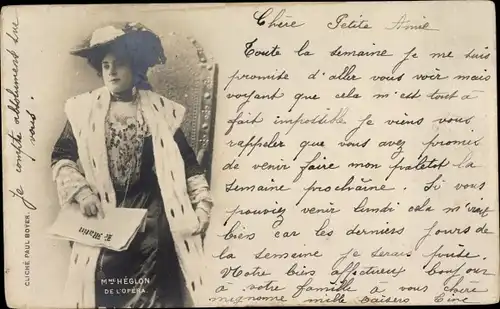 Chère Petite Amie
Toute la semaine je me suis
promise d'aller vous voir mais
voyant que cela m'est tout à
fait impossible je viens vous
rappeler que vous avez promis
de venir faire mon paletot la
semaine prochaine. Si vous
pouviez venir lundi cela m'irait
bien car les derniers jours de
la semaine je serais prise.
Notre bien affectueux bonjour
à votre famille à vous chère
mignonne mille baisers
Je compte absolument sur
vous.
Le Matin
MME HÉGLON
DE L'OPÉRA
CLICHÉ PAUL BOYER.